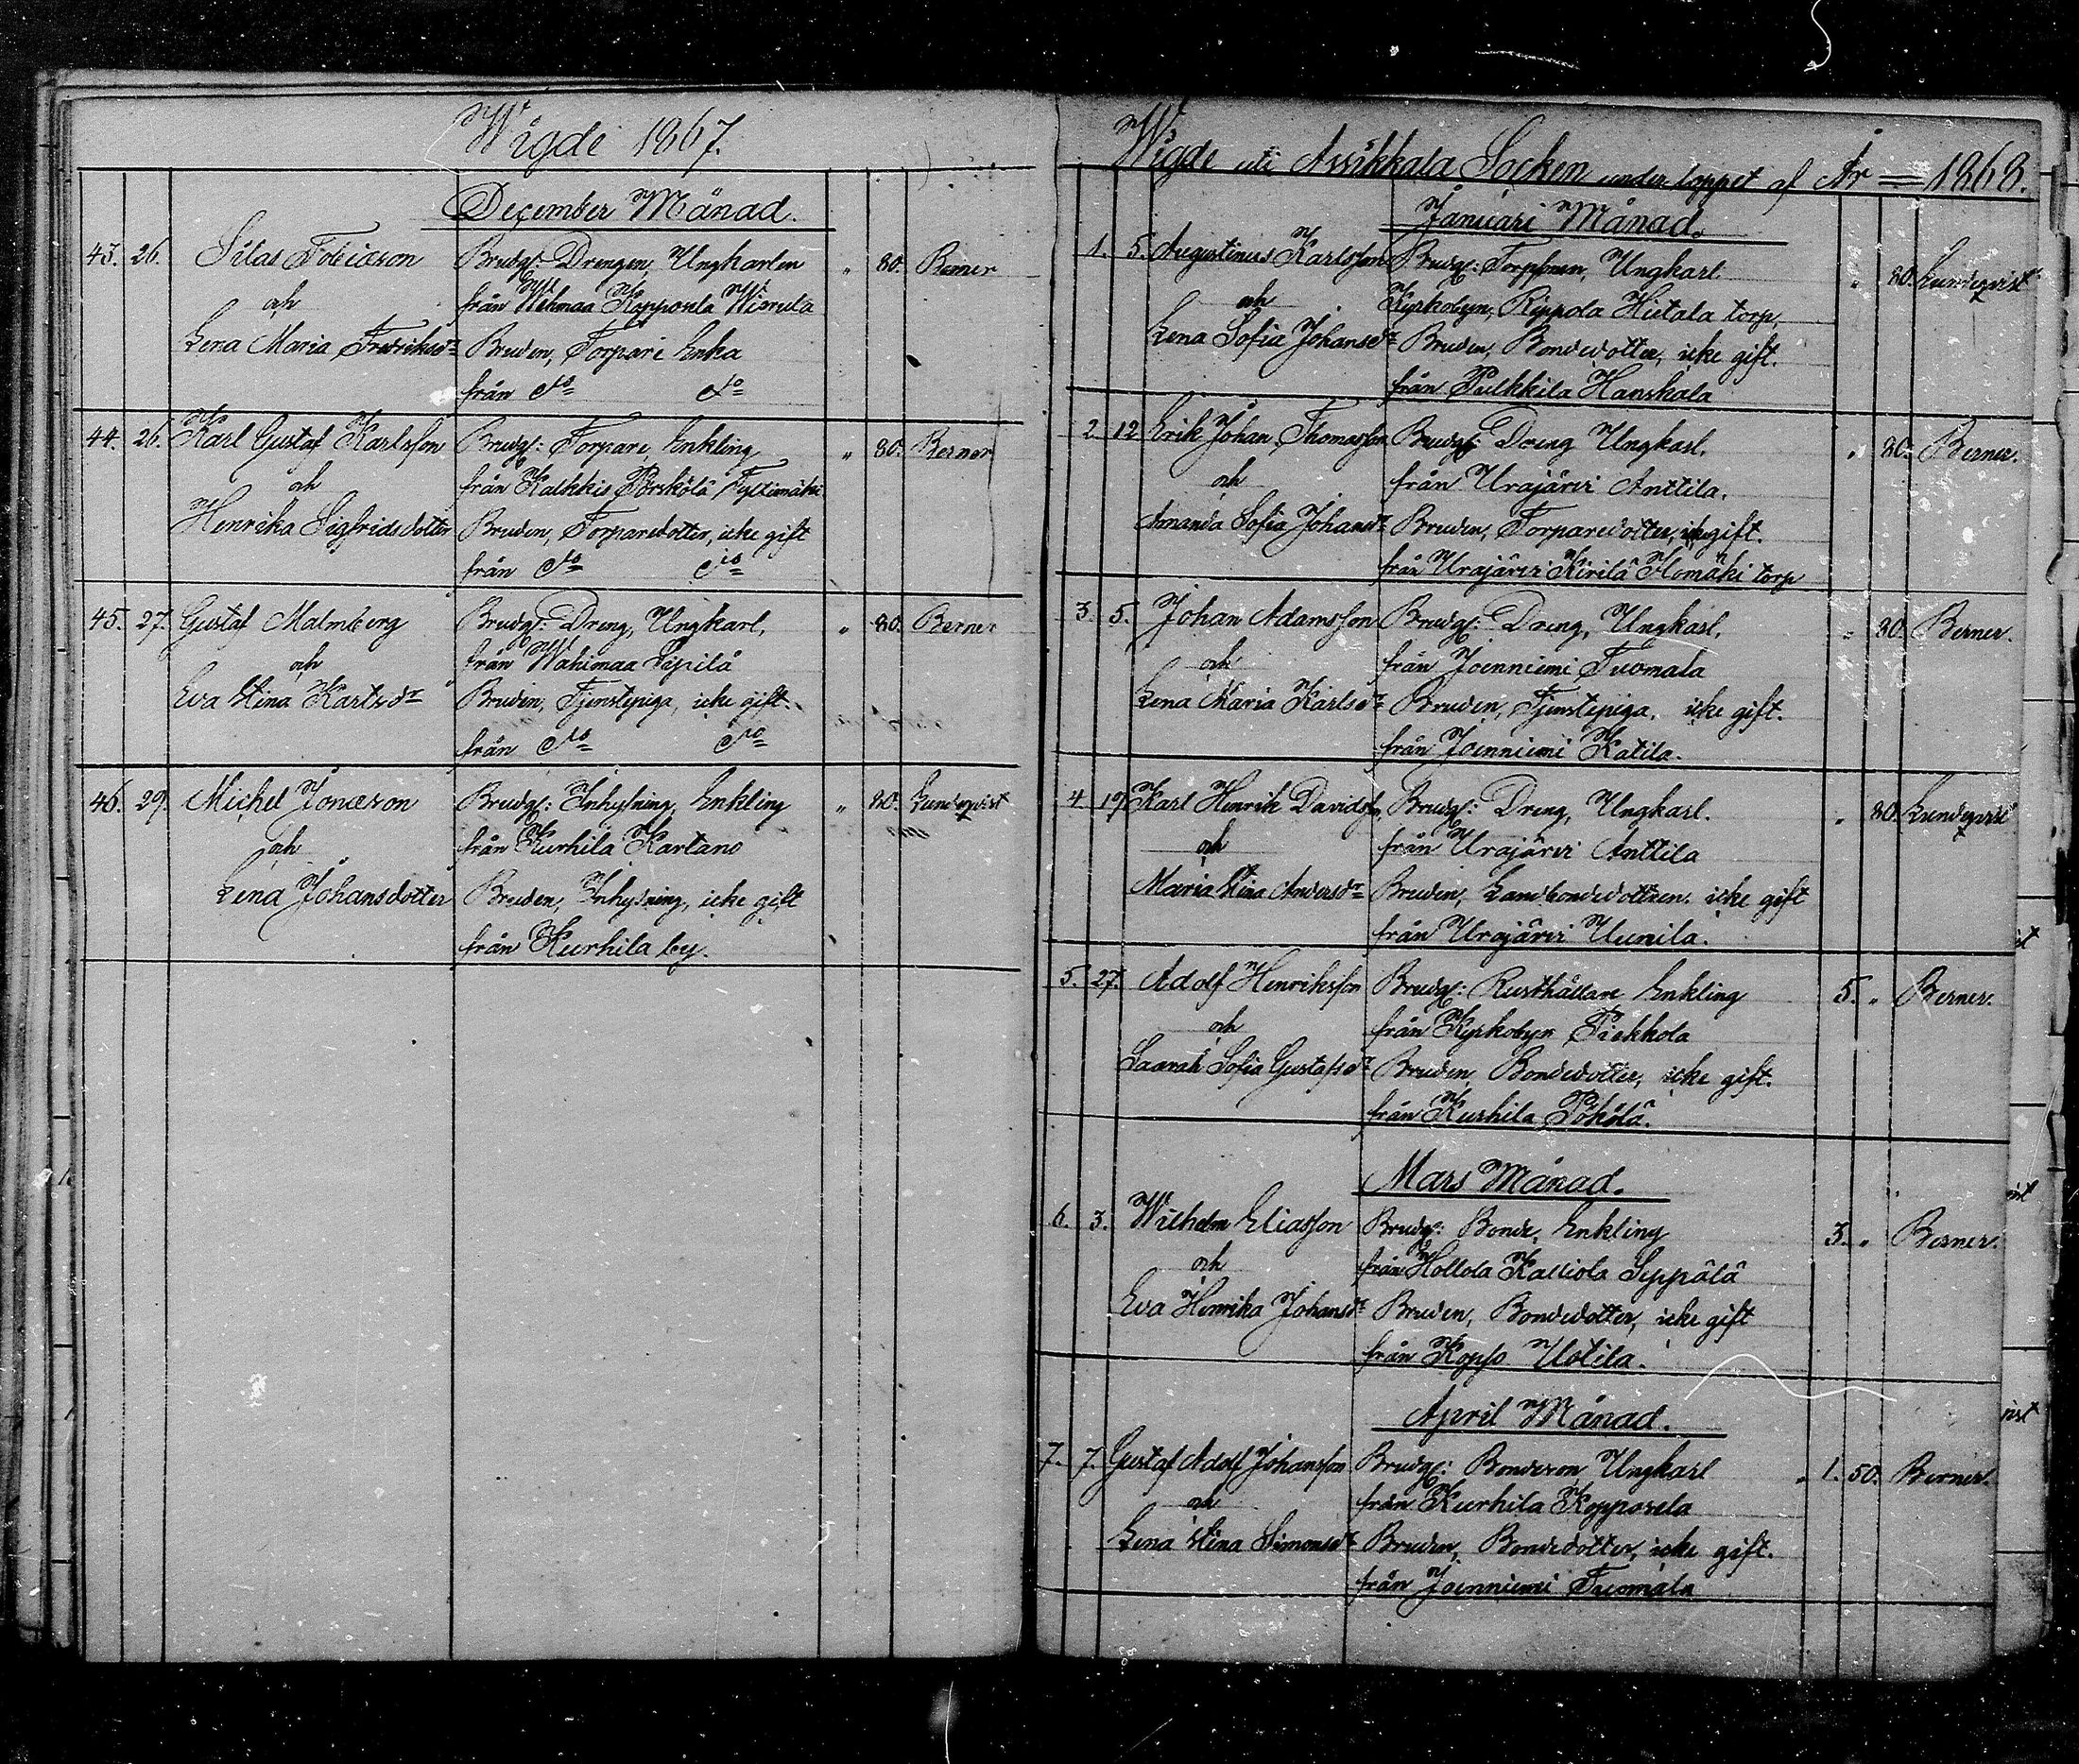 Wigde 1867.
December Månad.
43. 26. Silas Tobiason Brudg: Drengen, Ungkarlen " 80. Berner
och från Wehmaa Kopposela Wierula
Lena Maria Fredriksdr Bruden, Torpare Enka
från do do
44. 26. Karl Gustaf Karlsson Brudg: Torpare, Enkling " 80. Berner
och från Kalkkis Pörskölä
Henrika Sigfridsdotter Bruden, Torparedotter, icke gift
från do do
45. 27. Gustaf Malmberg Brudg: Dreng, Ungkarl, " 80. Berner
och från Wähimaa Sipilä
Eva Stina Karlsdr Bruden, Tjenstepiga, icke gift.
från do do
46. 29. Michel Jonason Brudg: Inhysning, Enkling " 80. Lundqvist
och från Kurhila Kartano
Lena Johansdotter Bruden, Inhysning, icke gift
från Kurhila by.
Wigde uti Assikkala Socken under loppet af År = 1868.
Januari Månad.
1. 5. Augustinus Karlsson Brudg: Torpson, Ungkarl. " 80. Lundqvist
och Kyrkobyn, Rippola Hietala torp,
Lena Sofia Johansdr Bruden, Bondedotter, icke gift.
från Pulkkila Hanskala
2. 12 Erik Johan Thomasson Brudg: Dreng Ungkarl. " 80. Berner.
och från Urajärvi Anttila.
Amanda Sofia Johansdr Bruden, Torparedotter, icke gift.
från Urajärvi Kirilä Homäki torp
3. 5. Johan Adamsson Brudg: Dreng, Ungkarl. " 80. Berner.
och från Joenniemi Tuomala
Lena Maria Karlsdr Bruden, Tjenstepiga, icke gift.
från Joenniemi Katila.
4 19 Karl Henrik Davidsson Brudg: Dreng, Ungkarl. " 80. Lundqvist
och från Urajärvi Anttila
Maria Stina Andersdr Bruden, Landbondedottren, icke gift
från Urajärvi Uunila.
5. 27. Adolf Henriksson Brudg: Rusthållare Enkling 5. " Berner.
och från Kyrkobyn Piekkola
Saarah Sofia Gustafsdr Bruden, Bondedotter, icke gift.
från Kurhila Pökölä.
Mars Månad.
6. 3. Wilhelm Eliasson Brudg: Bonde, Enkling 3. " Berner.
och från Hollola Kalliola Seppälä
Eva Henrika Johansdr Bruden, Bondedotter, icke gift
från Kopso Uotila.
April Månad.
7. 7. Gustaf Adolf Johansson Brudg: Bondeson, Ungkarl 1. 50. Berner.
och från Kurhila Kopposela
Lena Stina Simonsdr Bruden, Bondedotter, icke gift.
från Joenniemi Tuomala